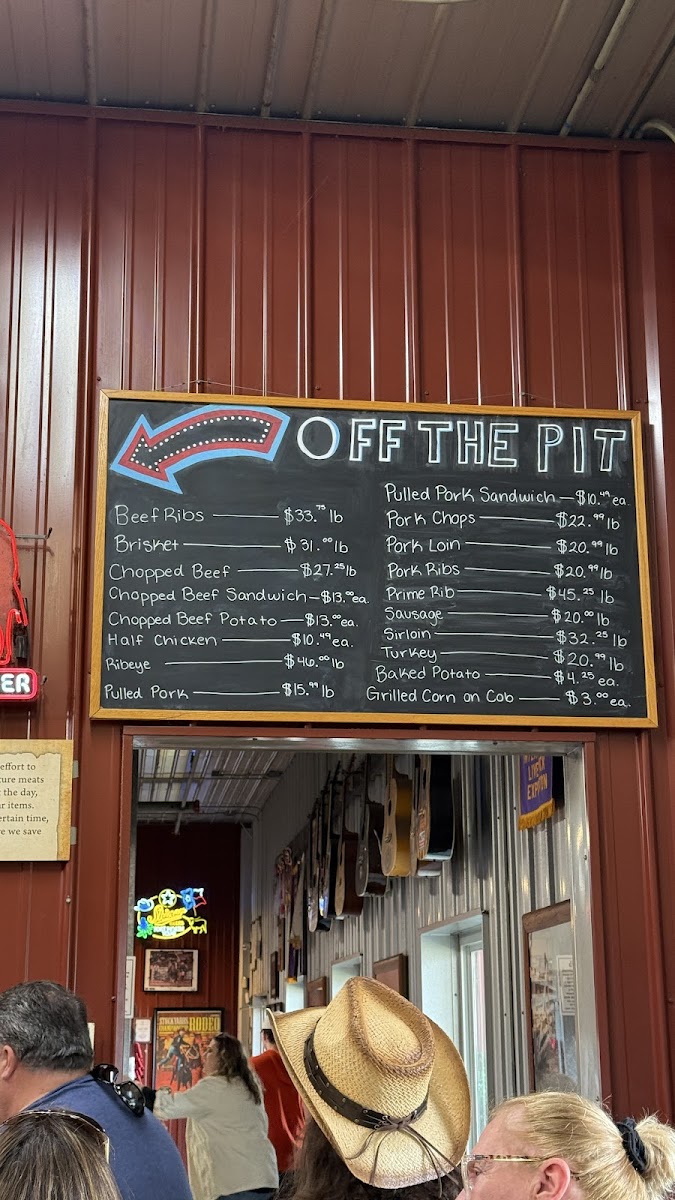 OFF THE PIT
Beef Ribs $33.75 lb
Brisket $31.00 lb
Chopped Beef $27.25 lb
Chopped Beef Sandwich $13.00 ea.
Chopped Beef Potato $13.00 ea.
Half Chicken $10.49 ea.
Ribeye $46.00 lb
Pulled Pork $15.99 lb
Pulled Pork Sandwich $10.49 ea.
Pork Chops $22.99 lb
Pork Loin $20.99 lb
Pork Ribs $20.99 lb
Prime Rib $45.25 lb
Sausage $20.00 lb
Sirloin $32.25 lb
Turkey $20.99 lb
Baked Potato $4.25 ea.
Grilled Corn on Cob $3.00 ea.
ER
effort to
ture meats
t the day,
r items.
ertain time,
e we save
RODEO